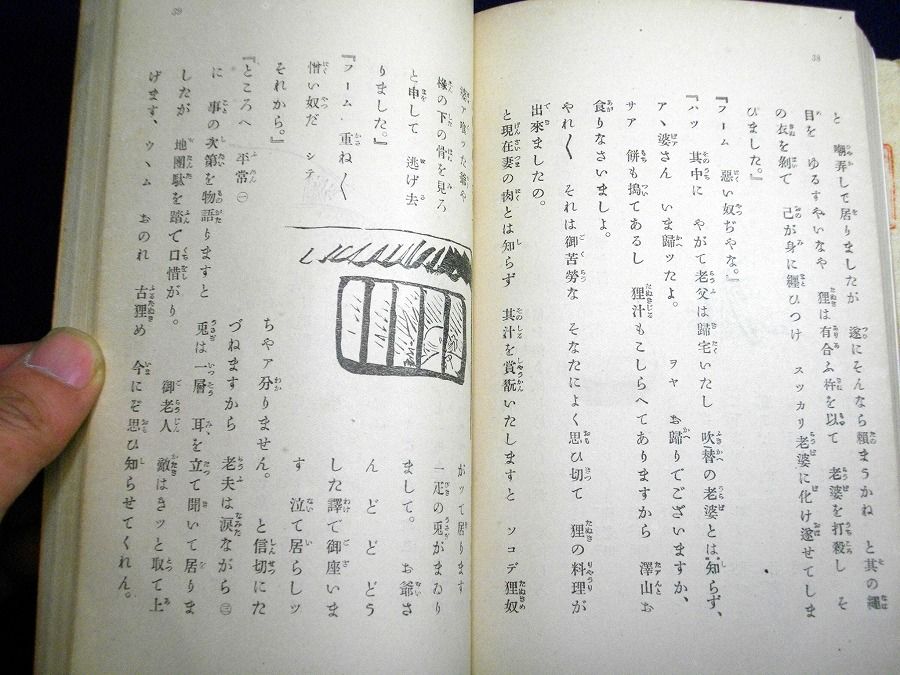 38
と 嘲弄して居りましたが 遂にそんなら頼まうかね と其の縄
目を ゆるすやいなや 狸は有合ふ杵を以て 老婆を打殺し そ
の衣を剝て 己が身に纏ひつけ スッカリ老婆に化け遂せてしま
ひました。』
『フーム 悪い奴ぢやな。』
『ハッ 其中に やがて老父は帰宅いたし 吹替の老婆とは知らず、
アヽ婆さん いま帰ッたよ。 ヲヤ お帰りでございますか、
サア 餅も搗てあるし 狸汁もこしらへてありますから 澤山お
食りなさいましよ。
やれ〳〵 それは御苦労な そなたによく思ひ切て 狸の料理が
出來ましたの。
と現在妻の肉とは知らず 其汁を賞翫いたしますと ソコデ狸奴
39
婆ァ喰った爺や
椽の下の骨を見ろ
と申して 逃げ去
りました。』
『フーム 重ね〳〵
憎い奴だ シテ
それから。』
『ところへ 平常㊀
がッて居ります
一疋の兎がまゐり
まして。 お爺さ
ん どど どう
した譯で御座いま
す 泣て居らしッ
ちやァ分りません。 と信切にた
づねますから 老夫は涙ながら㊂
に 事の次第を物語りますと 兎は一層 耳を立て聞いて居りま
したが 地團駄を踏て口惜がり。 御老人 敵はきッと取て上
げます、 ウヽム おのれ 古狸め 今にぞ思ひ知らせてくれん。